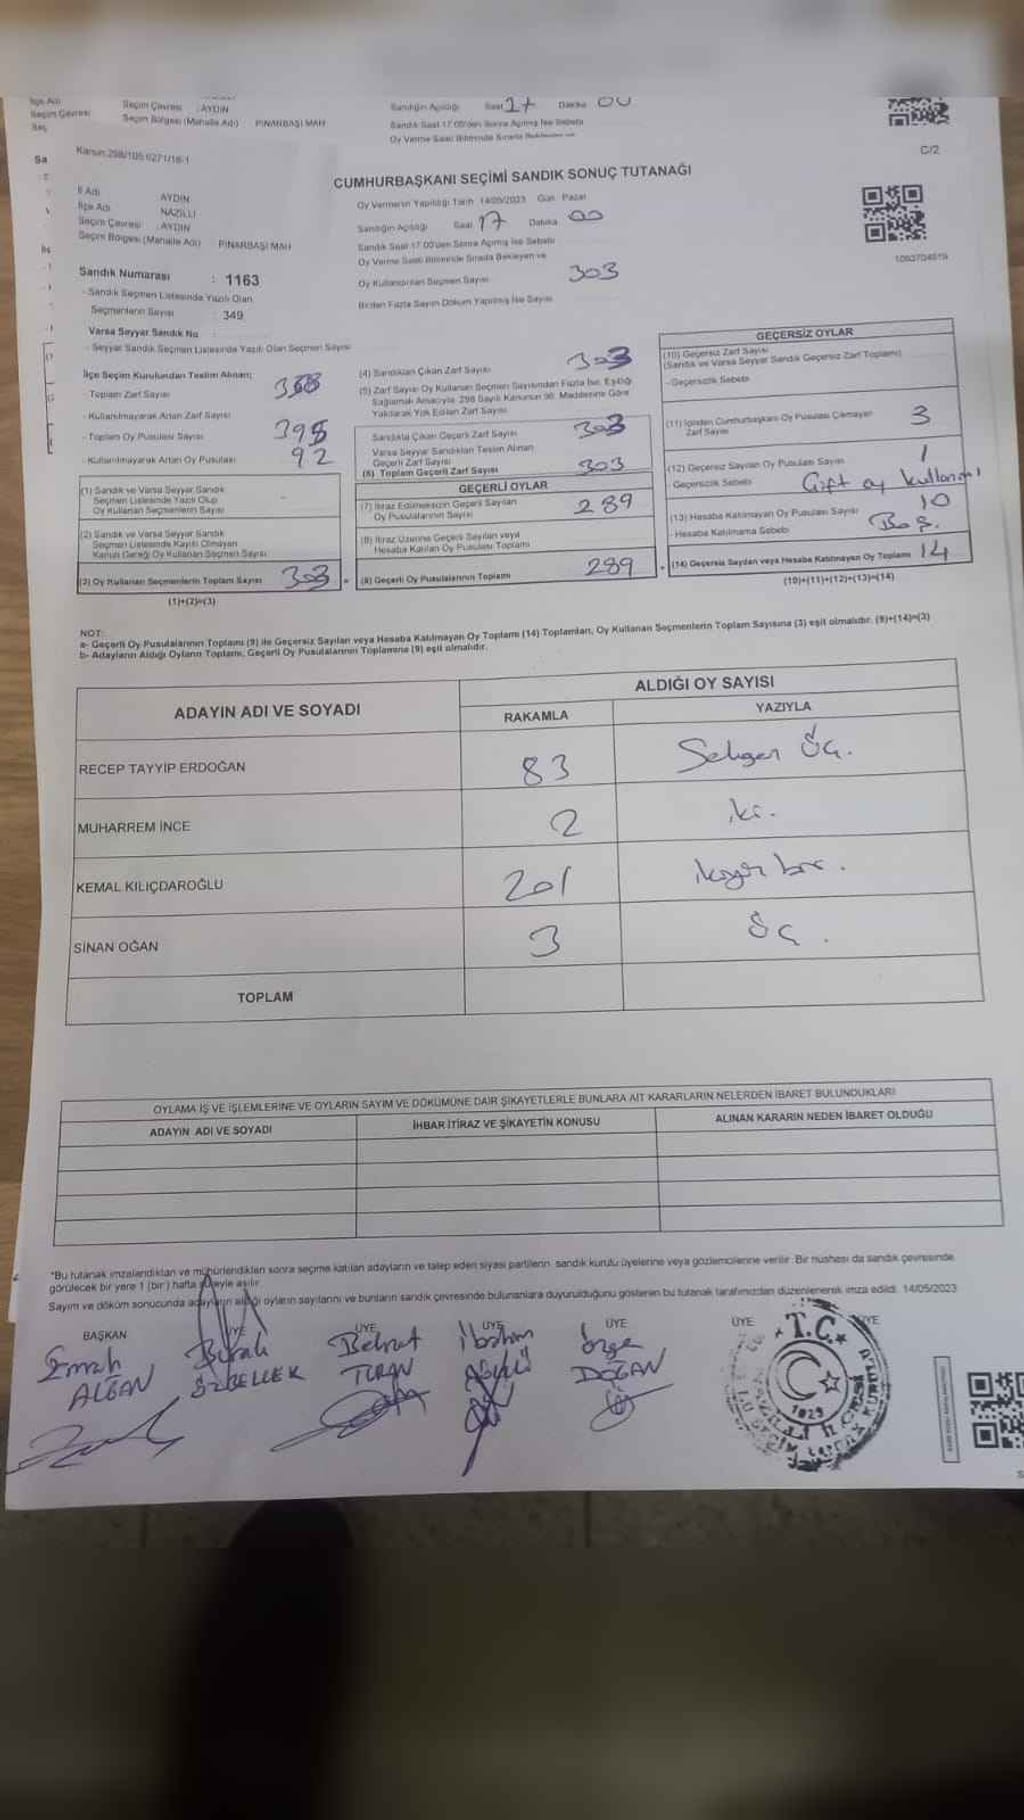 İlçe Adı
Seçim Çevresi
Seçim Çevresi : AYDIN
Seçim Bölgesi (Mahalle Adı) PINARBAŞI MAH
Sandığın Açıldığı Saat 17 Dakika 00
Sandık Saat 17:00'den Sonra Açılmış İse Sebebi
Kanun:298/105 6271/18-1
C/2
CUMHURBAŞKANI SEÇİMİ SANDIK SONUÇ TUTANAĞI
İl Adı : AYDIN
İlçe Adı : NAZİLLİ
Seçim Çevresi : AYDIN
Seçim Bölgesi (Mahalle Adı) PINARBAŞI MAH
Oy Vermenin Yapıldığı Tarih 14/05/2023 Gün Pazar
Sandığın Açıldığı Saat 17 Dakika 00
Sandık Saat 17:00'den Sonra Açılmış İse Sebebi
Oy Verme Saati Bitiminde Sırada Bekleyen ve
Oy Kullandırılan Seçmen Sayısı 303
Birden Fazla Sayım Döküm Yapılmış İse Sayısı
Sandık Numarası : 1163
- Sandık Seçmen Listesinde Yazılı Olan
Seçmenlerin Sayısı : 349
Varsa Seyyar Sandık No
- Seyyar Sandık Seçmen Listesinde Yazılı Olan Seçmen Sayısı
İlçe Seçim Kurulundan Teslim Alınan;
- Toplam Zarf Sayısı
- Kullanılmayarak Artan Zarf Sayısı
- Toplam Oy Pusulası Sayısı 395
- Kullanılmayarak Artan Oy Pusulası 92
(1) Sandık ve Varsa Seyyar Sandık
Seçmen Listesinde Yazılı Olup
Oy Kullanan Seçmenlerin Sayısı
(2) Sandık ve Varsa Seyyar Sandık
Seçmen Listesinde Kayıtlı Olmayan
Kanun Gereği Oy Kullanan Seçmen Sayısı
(3) Oy Kullanan Seçmenlerin Toplam Sayısı 303
(1)+(2)=(3)
(4) Sandıktan Çıkan Zarf Sayısı 303
(5) Zarf Sayısı Oy Kullanan Seçmen Sayısından Fazla İse, Eşitliği
Sağlamak Amacıyla, 298 Sayılı Kanunun 98. Maddesine Göre
Yakılarak Yok Edilen Zarf Sayısı
Sandıkta Çıkan Geçerli Zarf Sayısı 303
Varsa Seyyar Sandıktan Teslim Alınan
Geçerli Zarf Sayısı
(6) Toplam Geçerli Zarf Sayısı 303
GEÇERLİ OYLAR
(7) İtiraz Edilmeksizin Geçerli Sayılan
Oy Pusulalarının Sayısı 289
(8) İtiraz Üzerine Geçerli Sayılan veya
Hesaba Katılan Oy Pusulası Toplamı
(9) Geçerli Oy Pusulalarının Toplamı 289
GEÇERSİZ OYLAR
(10) Geçersiz Zarf Sayısı
(Sandık ve Varsa Seyyar Sandık Geçersiz Zarf Toplamı)
- Geçersizlik Sebebi
(11) İçinden Cumhurbaşkanı Oy Pusulası Çıkmayan
Zarf Sayısı 3
(12) Geçersiz Sayılan Oy Pusulası Sayısı 1
Geçersizlik Sebebi Çift oy kullanımı
(13) Hesaba Katılmayan Oy Pusulası Sayısı 10
- Hesaba Katılmama Sebebi Boş.
(14) Geçersiz Sayılan veya Hesaba Katılmayan Oy Toplamı 14
(10)+(11)+(12)+(13)=(14)
NOT:
a- Geçerli Oy Pusulalarının Toplamı (9) ile Geçersiz Sayılan veya Hesaba Katılmayan Oy Toplamı (14) Toplamları, Oy Kullanan Seçmenlerin Toplam Sayısına (3) eşit olmalıdır. (9)+(14)=(3)
b- Adayların Aldığı Oyların Toplamı, Geçerli Oy Pusulalarının Toplamına (9) eşit olmalıdır.
ADAYIN ADI VE SOYADI ALDIĞI OY SAYISI
RAKAMLA YAZIYLA
RECEP TAYYİP ERDOĞAN 83 Seksen Üç.
MUHARREM İNCE 2 iki.
KEMAL KILIÇDAROĞLU 201 ikiyüz bir.
SİNAN OĞAN 3 Üç.
TOPLAM
OYLAMA İŞ VE İŞLEMLERİNE VE OYLARIN SAYIM VE DÖKÜMÜNE DAİR ŞİKAYETLERLE BUNLARA AİT KARARLARIN NELERDEN İBARET BULUNDUKLARI
ADAYIN ADI VE SOYADI İHBAR İTİRAZ VE ŞİKAYETİN KONUSU ALINAN KARARIN NEDEN İBARET OLDUĞU
*Bu tutanak imzalandıktan ve mühürlendikten sonra seçime katılan adayların ve talep eden siyasi partilerin sandık kurulu üyelerine veya gözlemcilerine verilir. Bir nüshası da sandık çevresinde
görülecek bir yere 1 (bir) hafta süreyle asılır.
Sayım ve döküm sonucunda adayların aldığı oyların sayılarını ve bunların sandık çevresinde bulunanlara duyurulduğunu gösteren bu tutanak tarafımızdan düzenlenerek imza edildi. 14/05/2023
BAŞKAN ÜYE ÜYE ÜYE ÜYE ÜYE ÜYE
Behrat İbrahim Özge
ALBAN TURAN DOĞAN
T.C.
1923